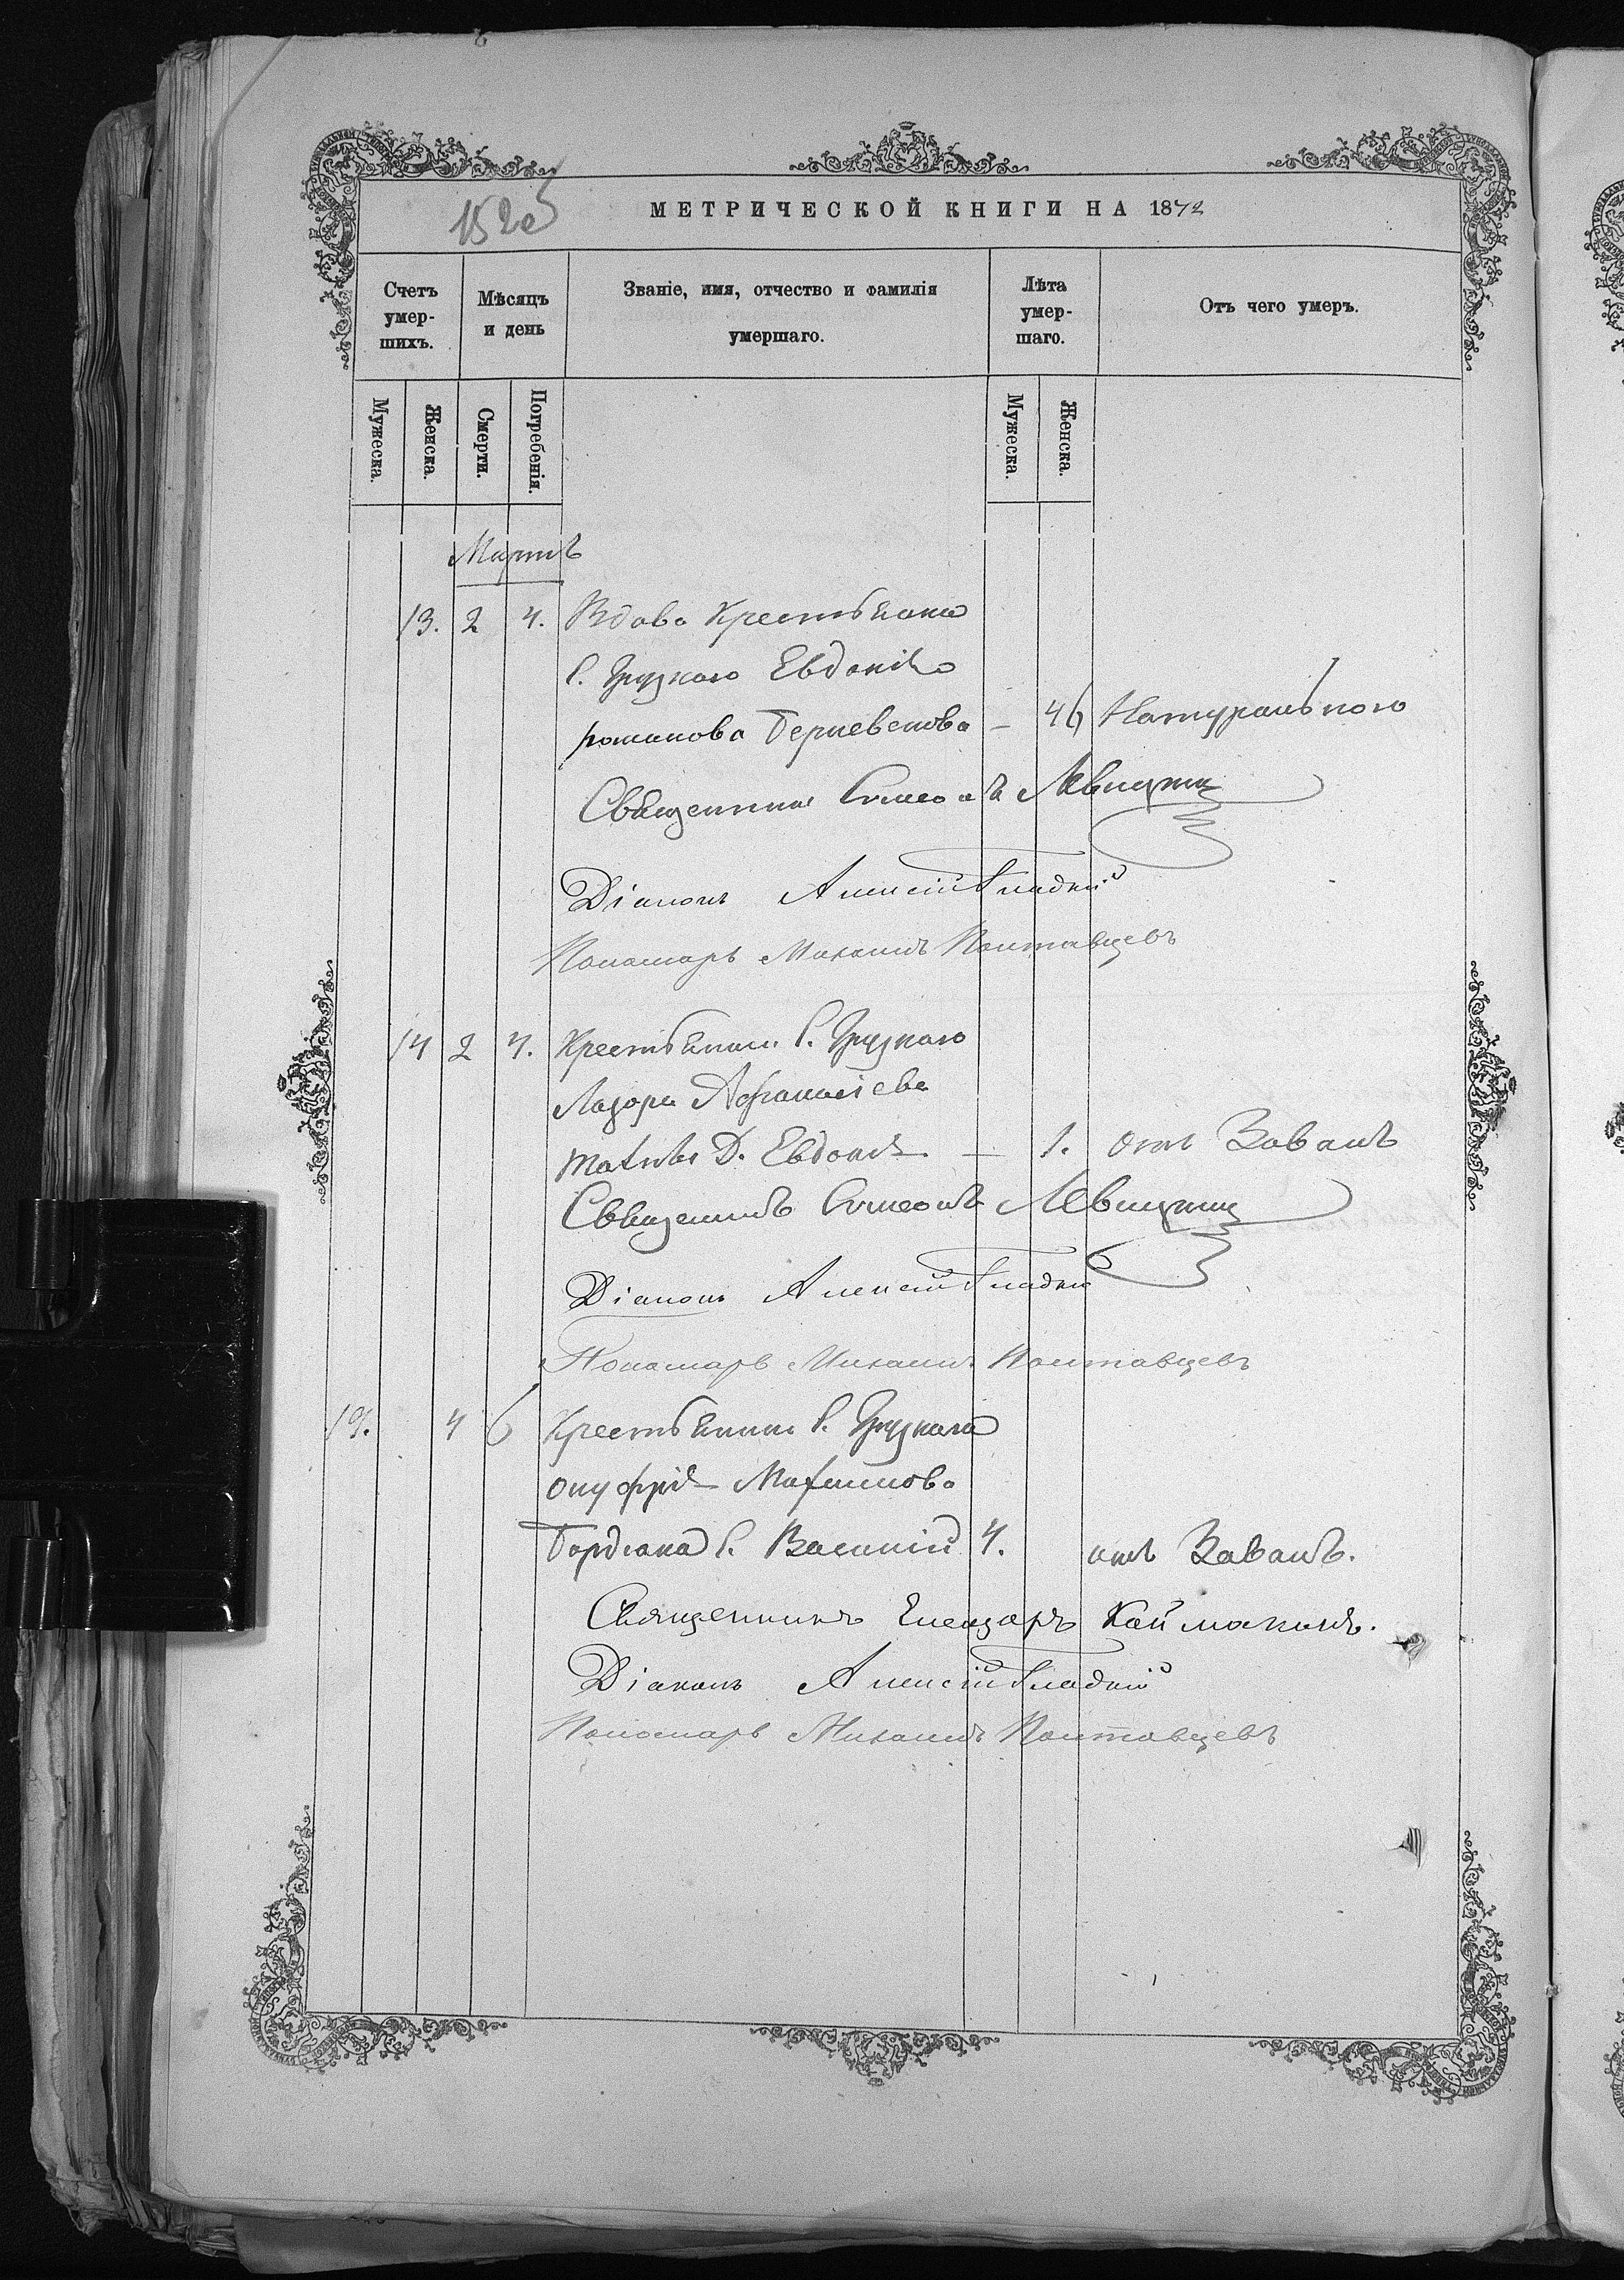 152об
МЕТРИЧЕСКОЙ КНИГИ НА 1872
Счетъ умер-шихъ.
Мѣсяцъ и день
Званіе, имя, отчество и фамилія умершаго.
Лѣта умер-шаго.
Отъ чего умеръ.
Мужеска. Женска. Смерти. Погребенія. Мужеска. Женска.
Мартъ
13. 2 4. Вдова Крестьянка
С. Грузкого Евдокія
романова — 46 Натурального
Священникъ Симеонъ Левицкій
Діаконъ Алексій Гладкій
Пономарь Михаилъ Полтавцевъ
14 2 4. Крестьянина С. Грузкого
Лазаря Афанасіева
Д. Евдокія — 1. отъ Завалъ
Священникъ Симеонъ Левицкій
Діаконъ Алексій Гладкій
Пономарь Михаилъ Полтавцевъ
19. 4 6 Крестьянина С. Грузкого
Онуфрія Максимова
С. Василій 4. отъ Завалъ.
Священникъ Елеазаръ Каймаканъ.
Діаконъ Алексій Гладкій
Пономарь Михаилъ Полтавцевъ